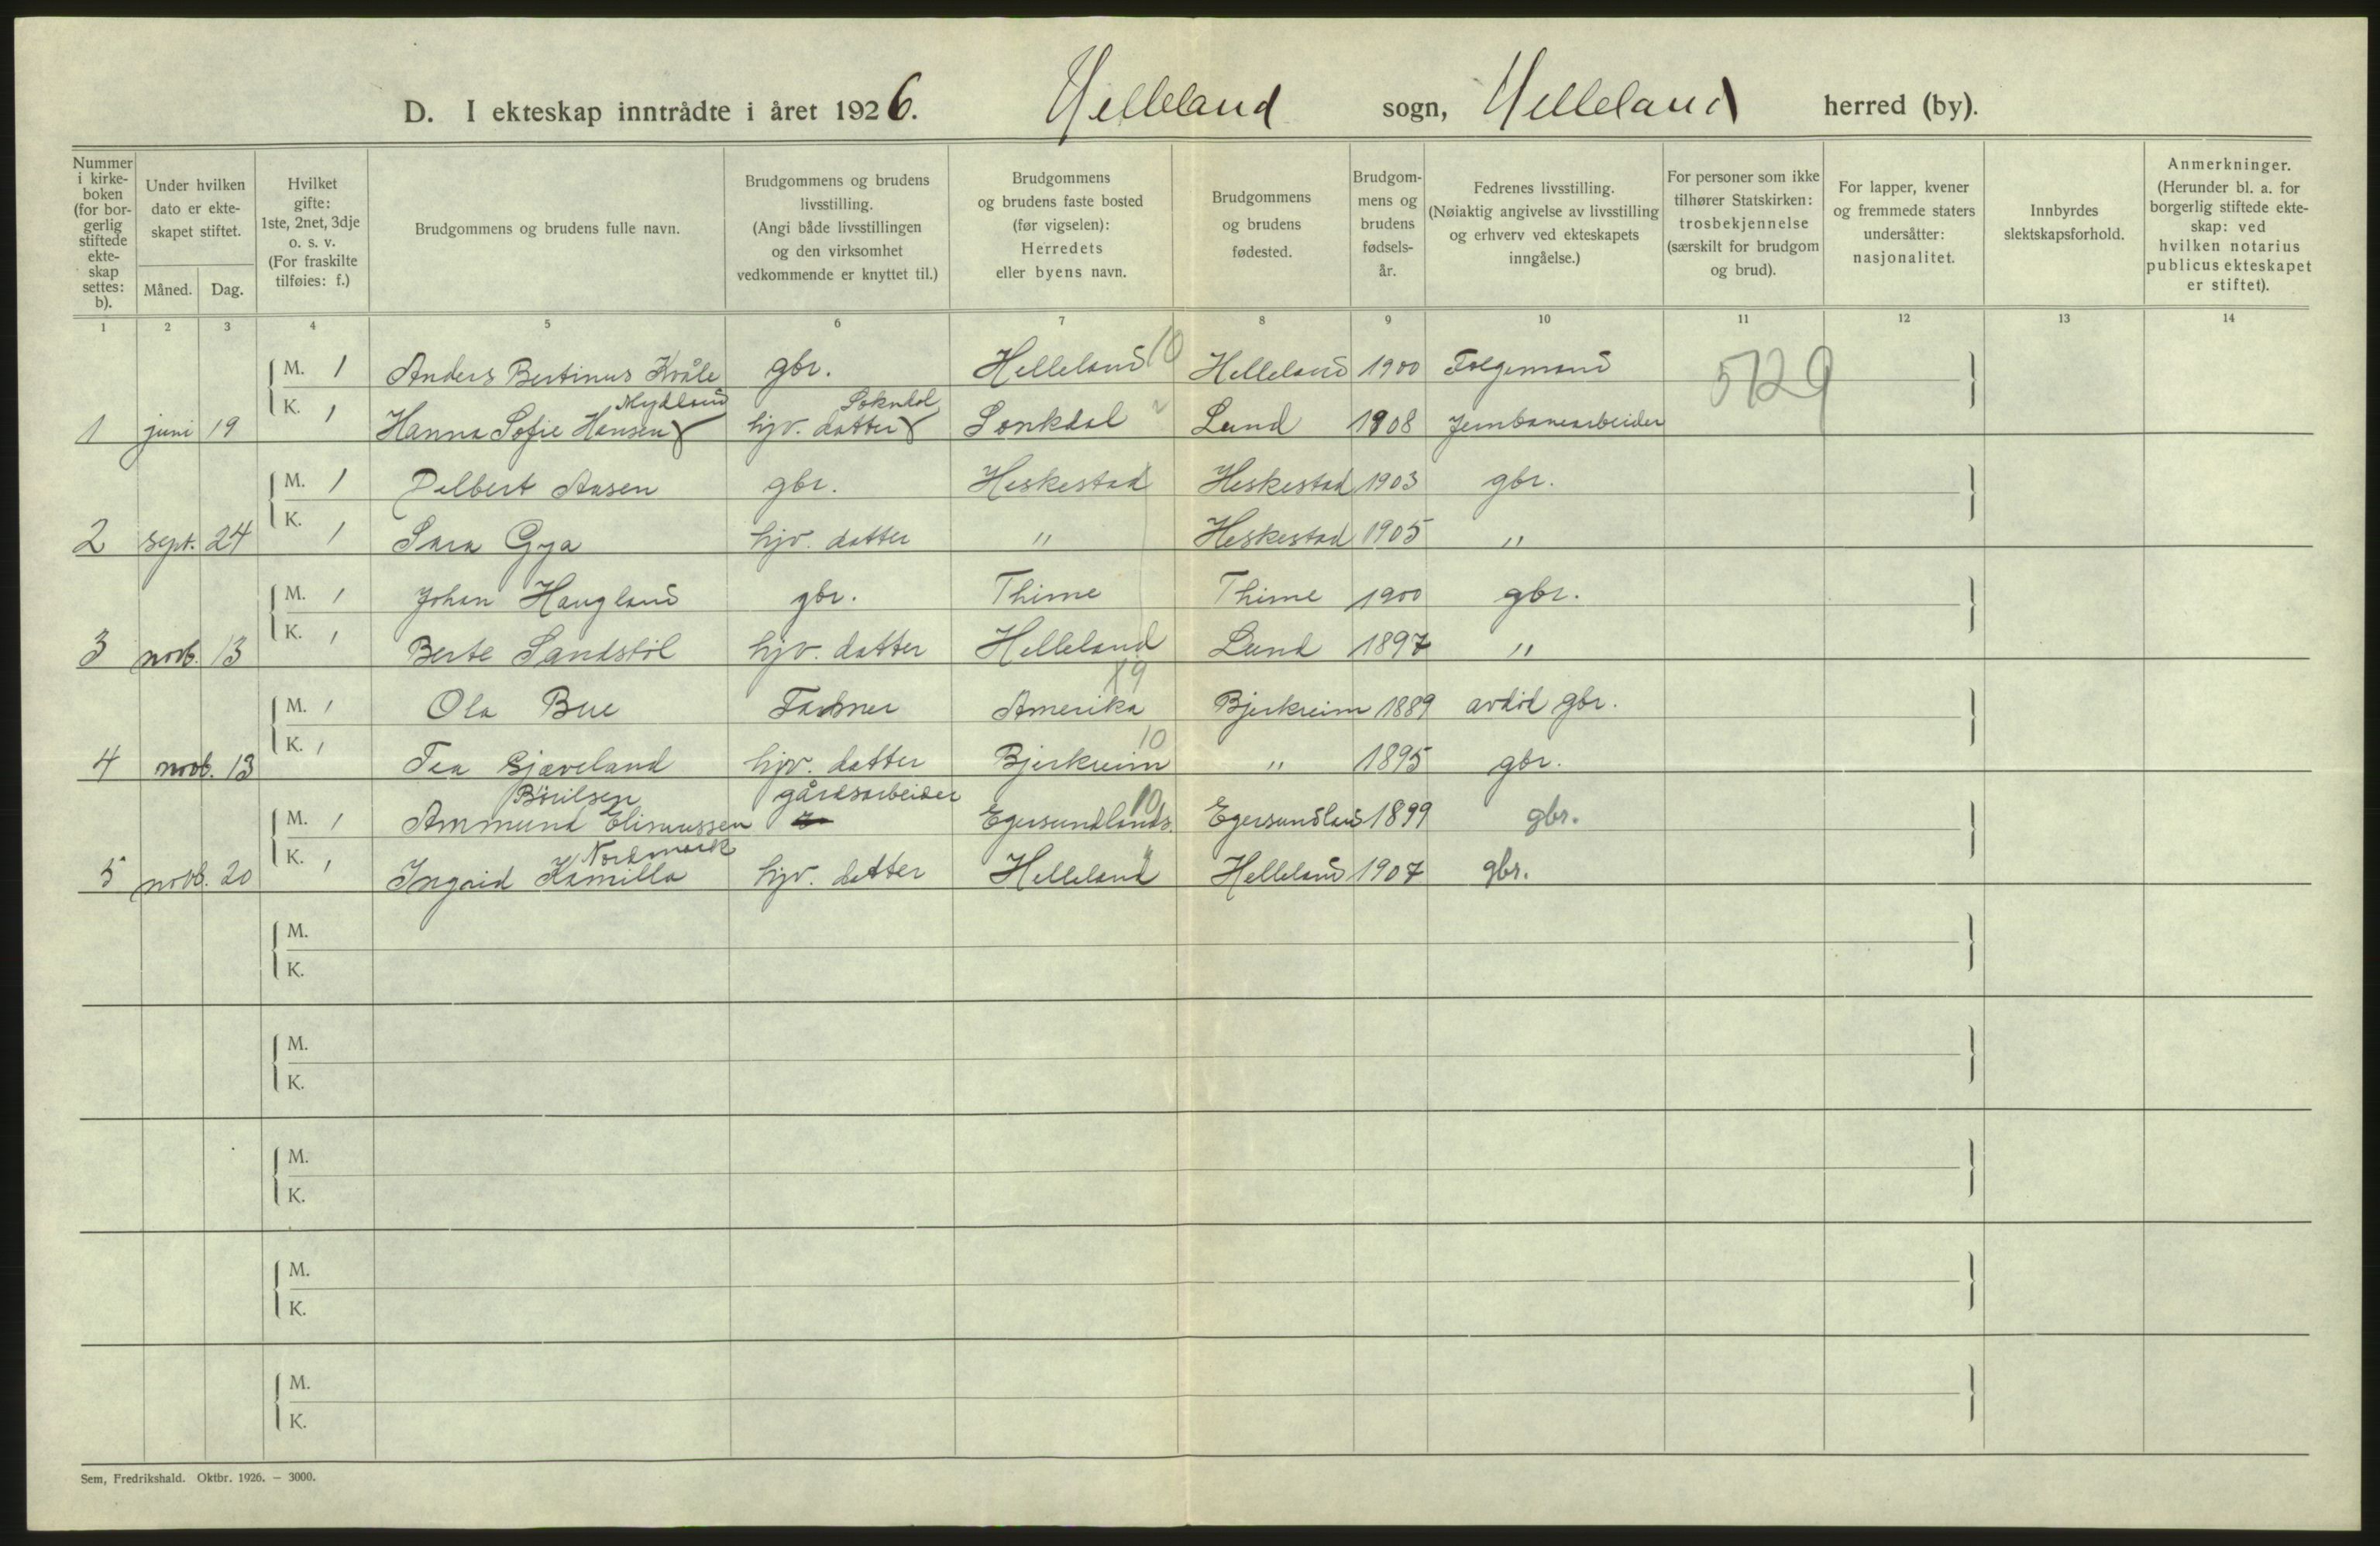 D. I ekteskap inntrådte i året 1926. Helleland sogn, Helleland herred (by).
Nummer i kirkeboken (for borgerlig stiftede ekteskap settes: b).
Under hvilken dato er ekteskapet stiftet.
Måned. Dag.
Hvilket gifte: 1ste, 2net, 3dje o. s. v. (For fraskilte tilføies: f.)
Brudgommens og brudens fulle navn.
Brudgommens og brudens livsstilling. (Angi både livsstillingen og den virksomhet vedkommende er knyttet til.)
Brudgommens og brudens faste bosted (før vigselen): Herredets eller byens navn.
Brudgommens og brudens fødested.
Brudgommens og brudens fødselsår.
Fedrenes livsstilling. (Nøiaktig angivelse av livsstilling og erhverv ved ekteskapets inngåelse.)
For personer som ikke tilhører Statskirken: trosbekjennelse (særskilt for brudgom og brud).
For lapper, kvener og fremmede staters undersåtter: nasjonalitet.
Innbyrdes slektskapsforhold.
Anmerkninger. (Herunder bl. a. for borgerlig stiftede ekteskap: ved hvilken notarius publicus ekteskapet er stiftet).
1 2 3 4 5 6 7 8 9 10 11 12 13 14
M. 1 Anders Bertinus Kvåle gbr. Helleland 10 Helleland 1900 Folgemand 5129
Mydland Sokndal
1 juni 19 K. 1 Hanna Sofie Hansen hjv. datter Sonkdal Lund 1908 Jernbanearbeider
M. 1 Delbert Aasen gbr. Heskestad Heskestad 1903 gbr.
2 sept. 24 K. 1 Sara Gya hjv. datter " Heskestad 1905 "
M. 1 Johan Haugland gbr. Thime Thime 1900 gbr.
3 novb. 13 K. 1 Berte Sandstöl hjv. datter Helleland Lund 1897 "
19
M. 1 Ola Bue Farmer Amerika Bjerkreim 1889 avdöd gbr.
10
4 novb. 13 K. 1 Tea Gjæveland hjv. datter Bjerkreim " 1895 gbr.
Börilsen gårdsarbeider 10
M. 1 Ammund Elismussen Egersundlands. Egersundland 1899 gbr.
Nordmark
5 novb. 20 K. 1 Ingrid Kamilla hjv. datter Helleland Helleland 1907 gbr.
M.
K.
M.
K.
M.
K.
M.
K.
M.
K.
Sem, Fredrikshald. Oktbr. 1926. – 3000.